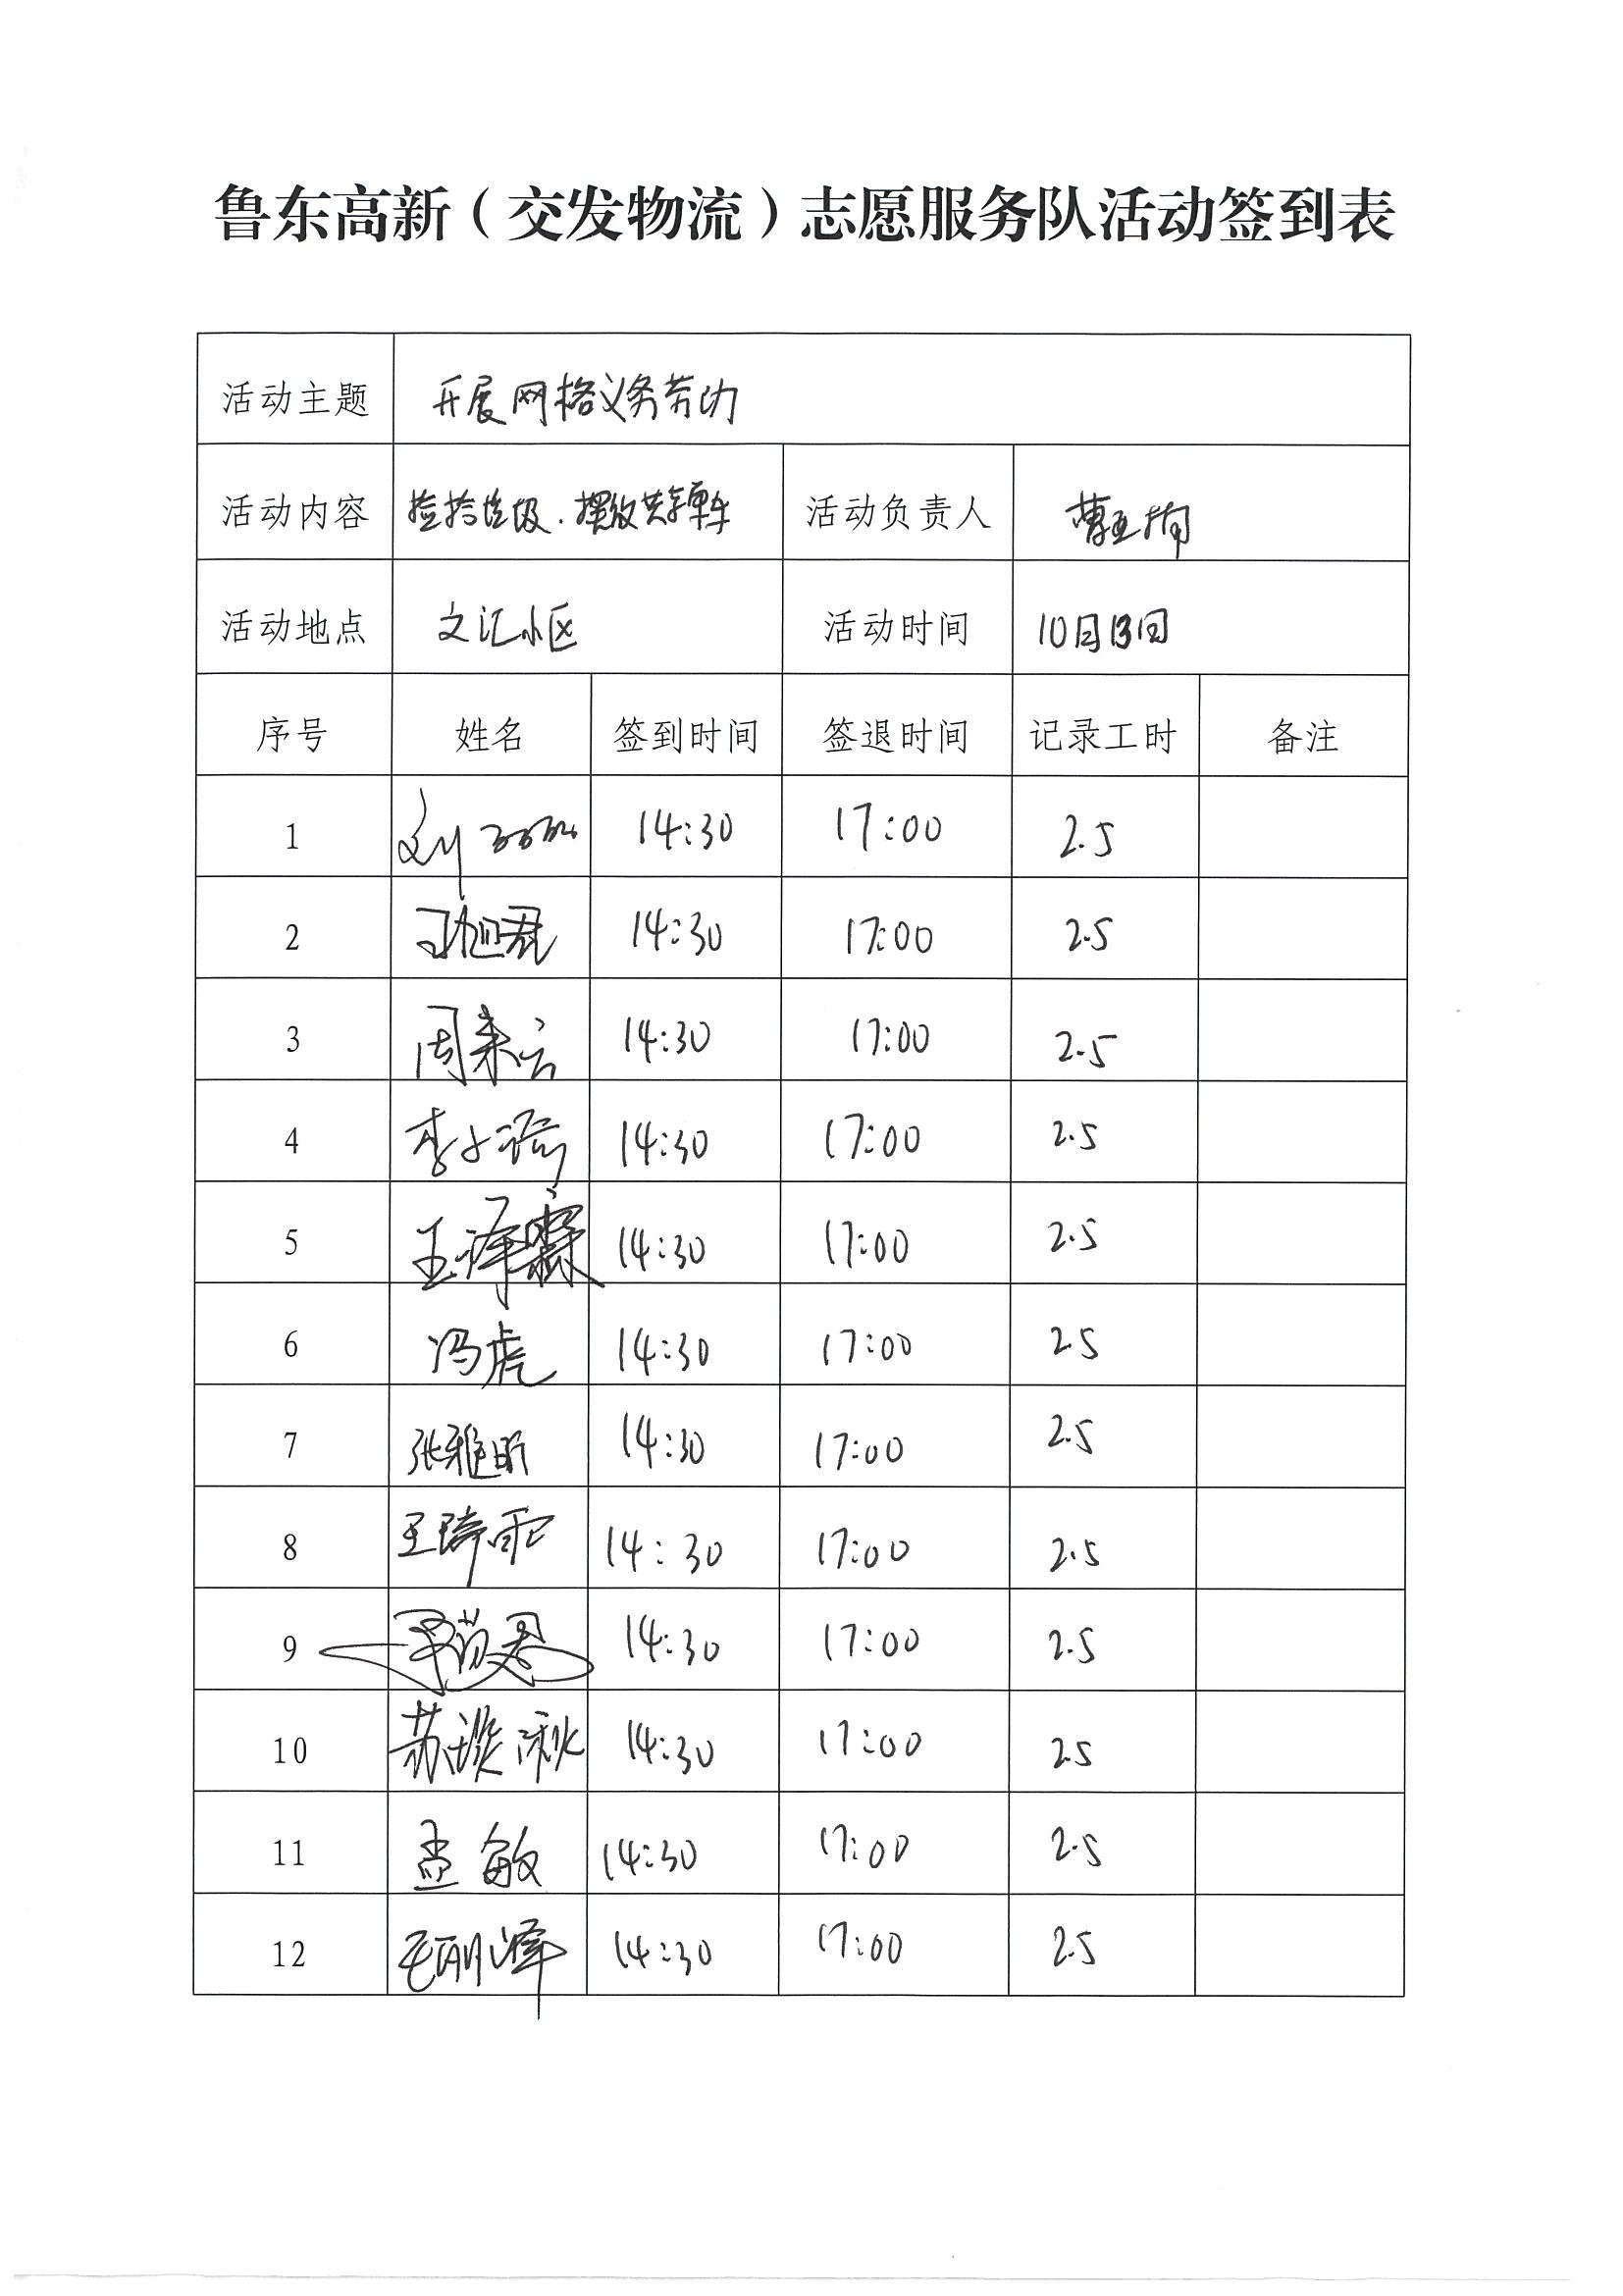 鲁东高新（交发物流）志愿服务队活动签到表
活动主题 开展网格义务劳动
活动内容 捡拾垃圾.摆放共享单车 活动负责人 曹亚楠
活动地点 文汇小区 活动时间 10月13日
序号 姓名 签到时间 签退时间 记录工时 备注
1 刘 14:30 17:00 2.5
2 14:30 17:00 2.5
3 周来云 14:30 17:00 2.5
4 李 14:30 17:00 2.5
5 王泽霖 14:30 17:00 2.5
6 冯虎 14:30 17:00 2.5
7 张雅昕 14:30 17:00 2.5
8 王琦 14:30 17:00 2.5
9 14:30 17:00 2.5
10 苏 秋 14:30 17:00 2.5
11 孟敏 14:30 17:00 2.5
12 14:30 17:00 2.5